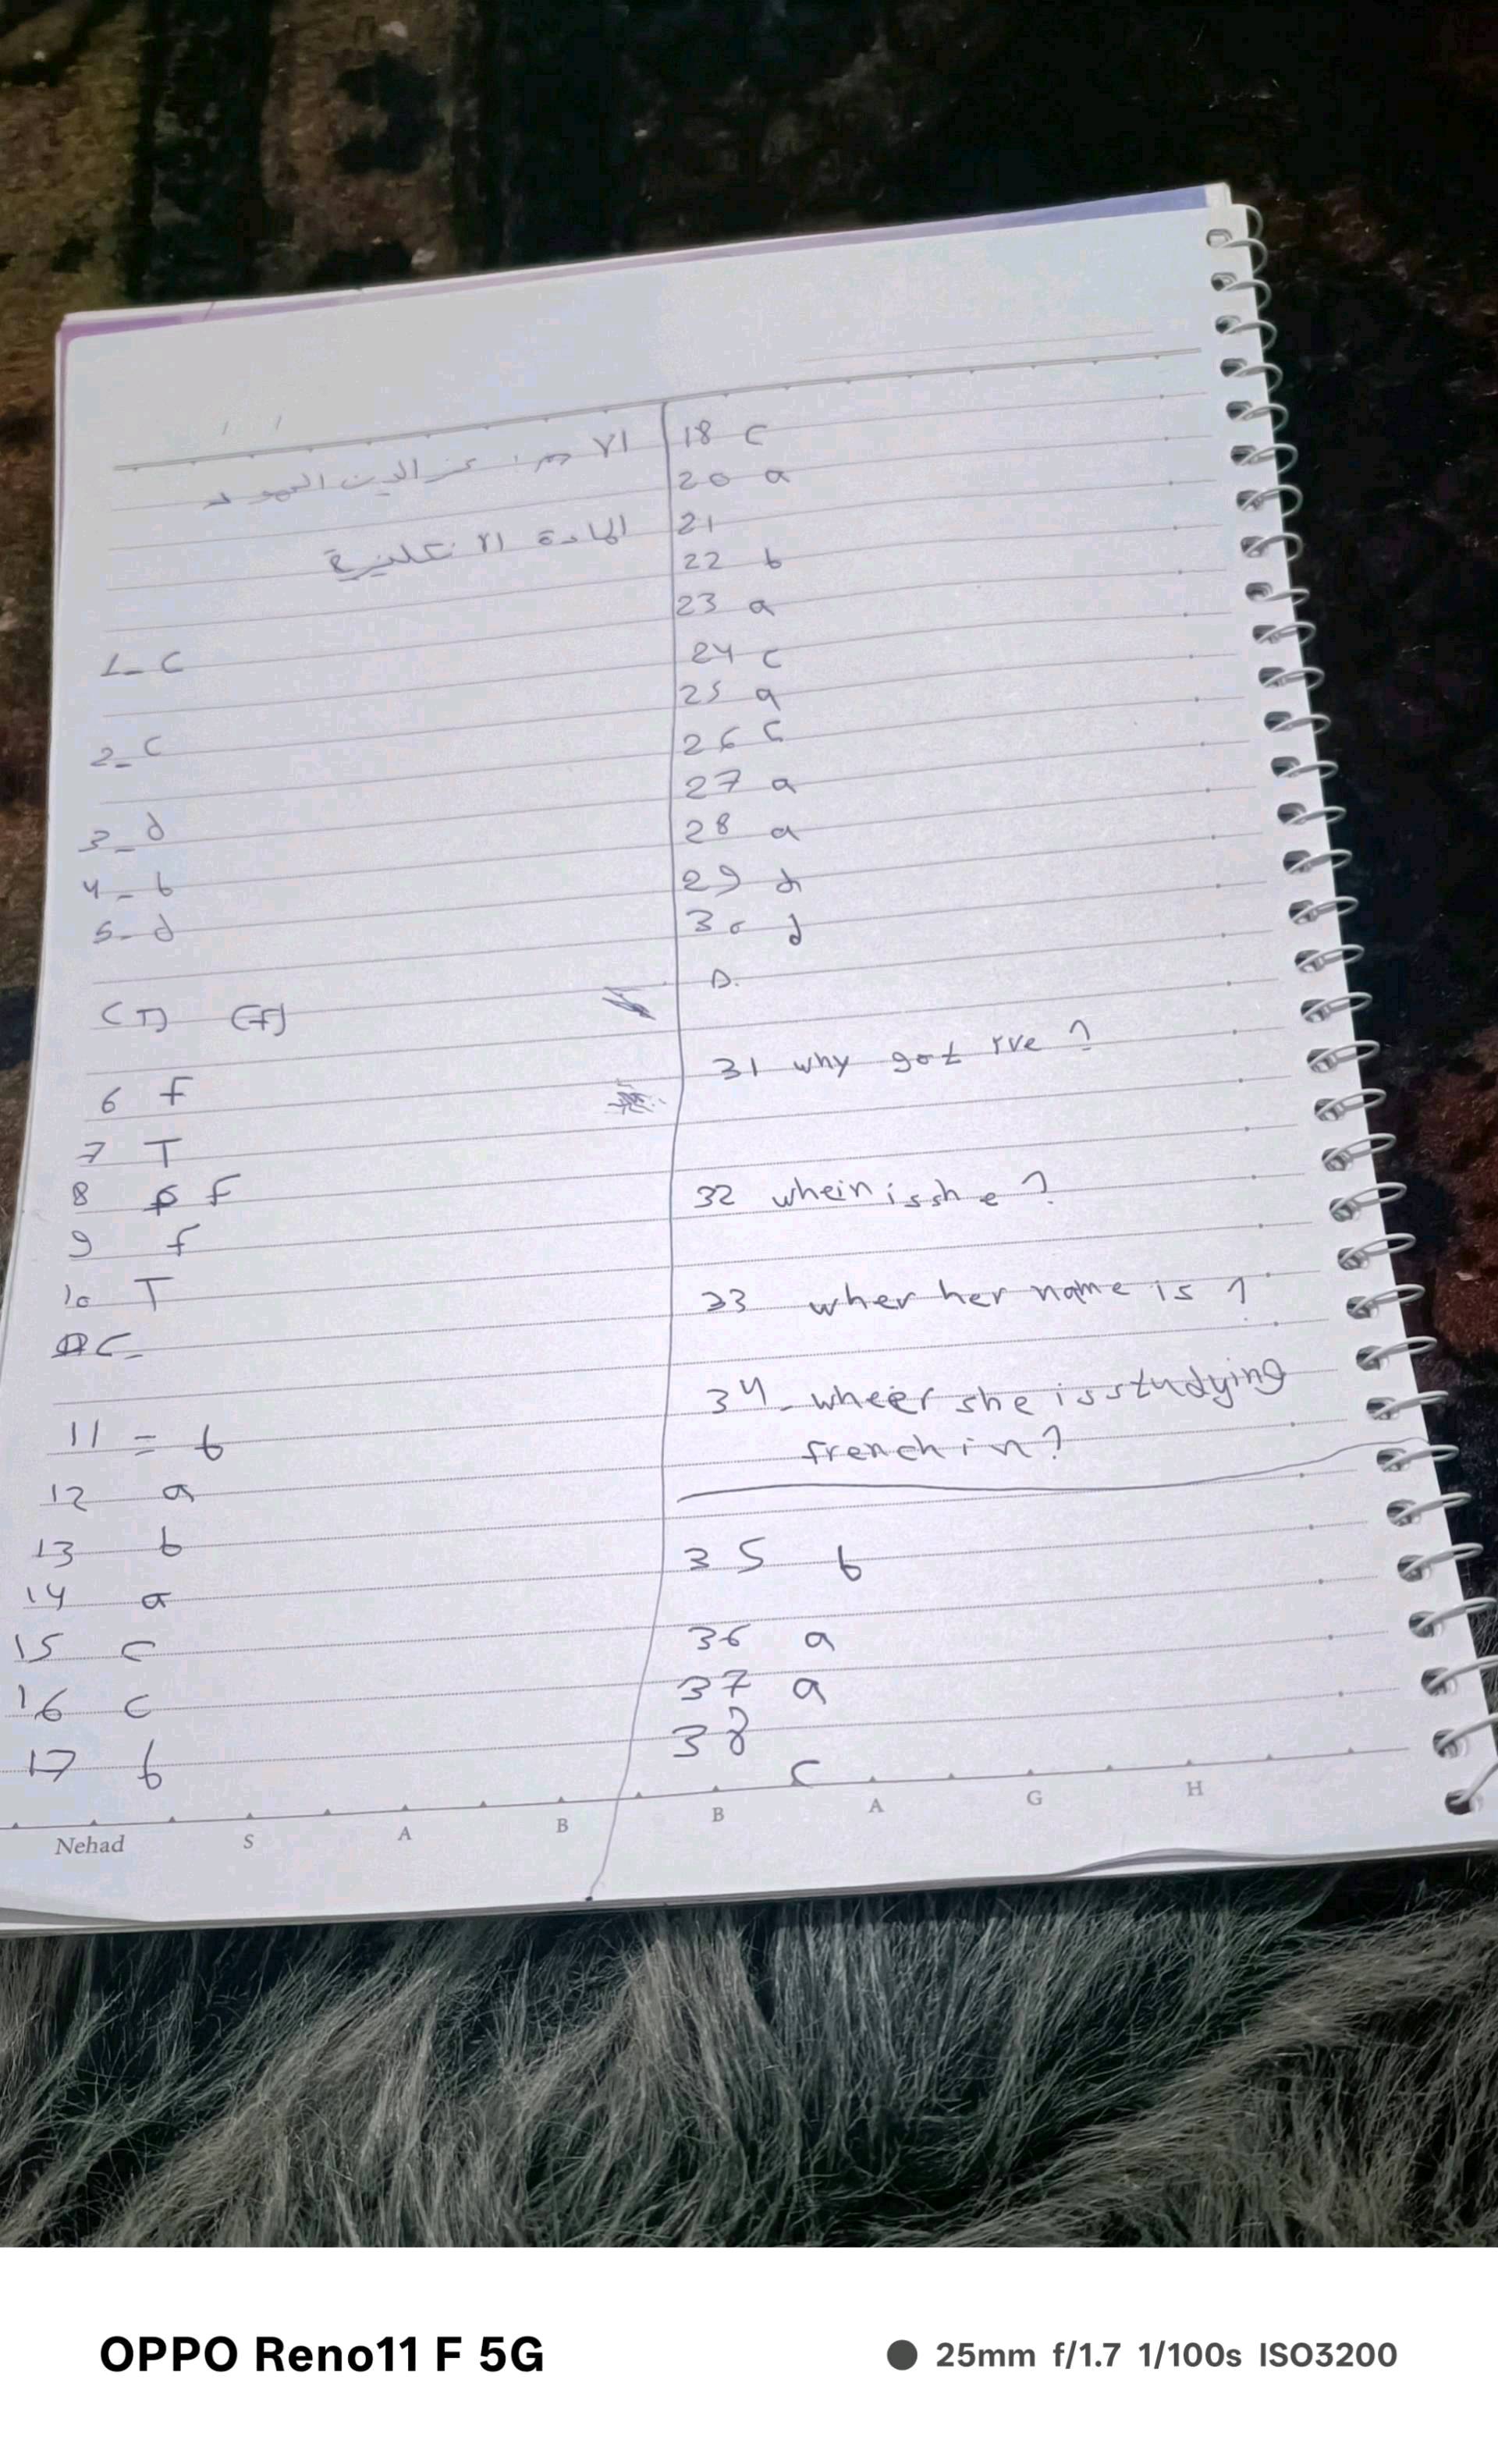 الاسم: عز الدين
المادة الانكليزية
1_ C
2_ C
3_ d
4_ b
5_ d
(T) (F)
6 F
7 T
8 F
9 f
10 T
C_
11 = b
12 a
13 b
14 a
15 C
16 C
17 b
18 C
20 a
21
22 b
23 a
24 C
25 a
26 C
27 a
28 a
29 d
30 d
D.
31 why got rve ?
32 whein is she ?
33 wher her name is ?
34_ wheer she is studying
french in ?
35 b
36 a
37 a
38
C
Nehad S A B B A G H
OPPO Reno11 F 5G
25mm f/1.7 1/100s ISO3200